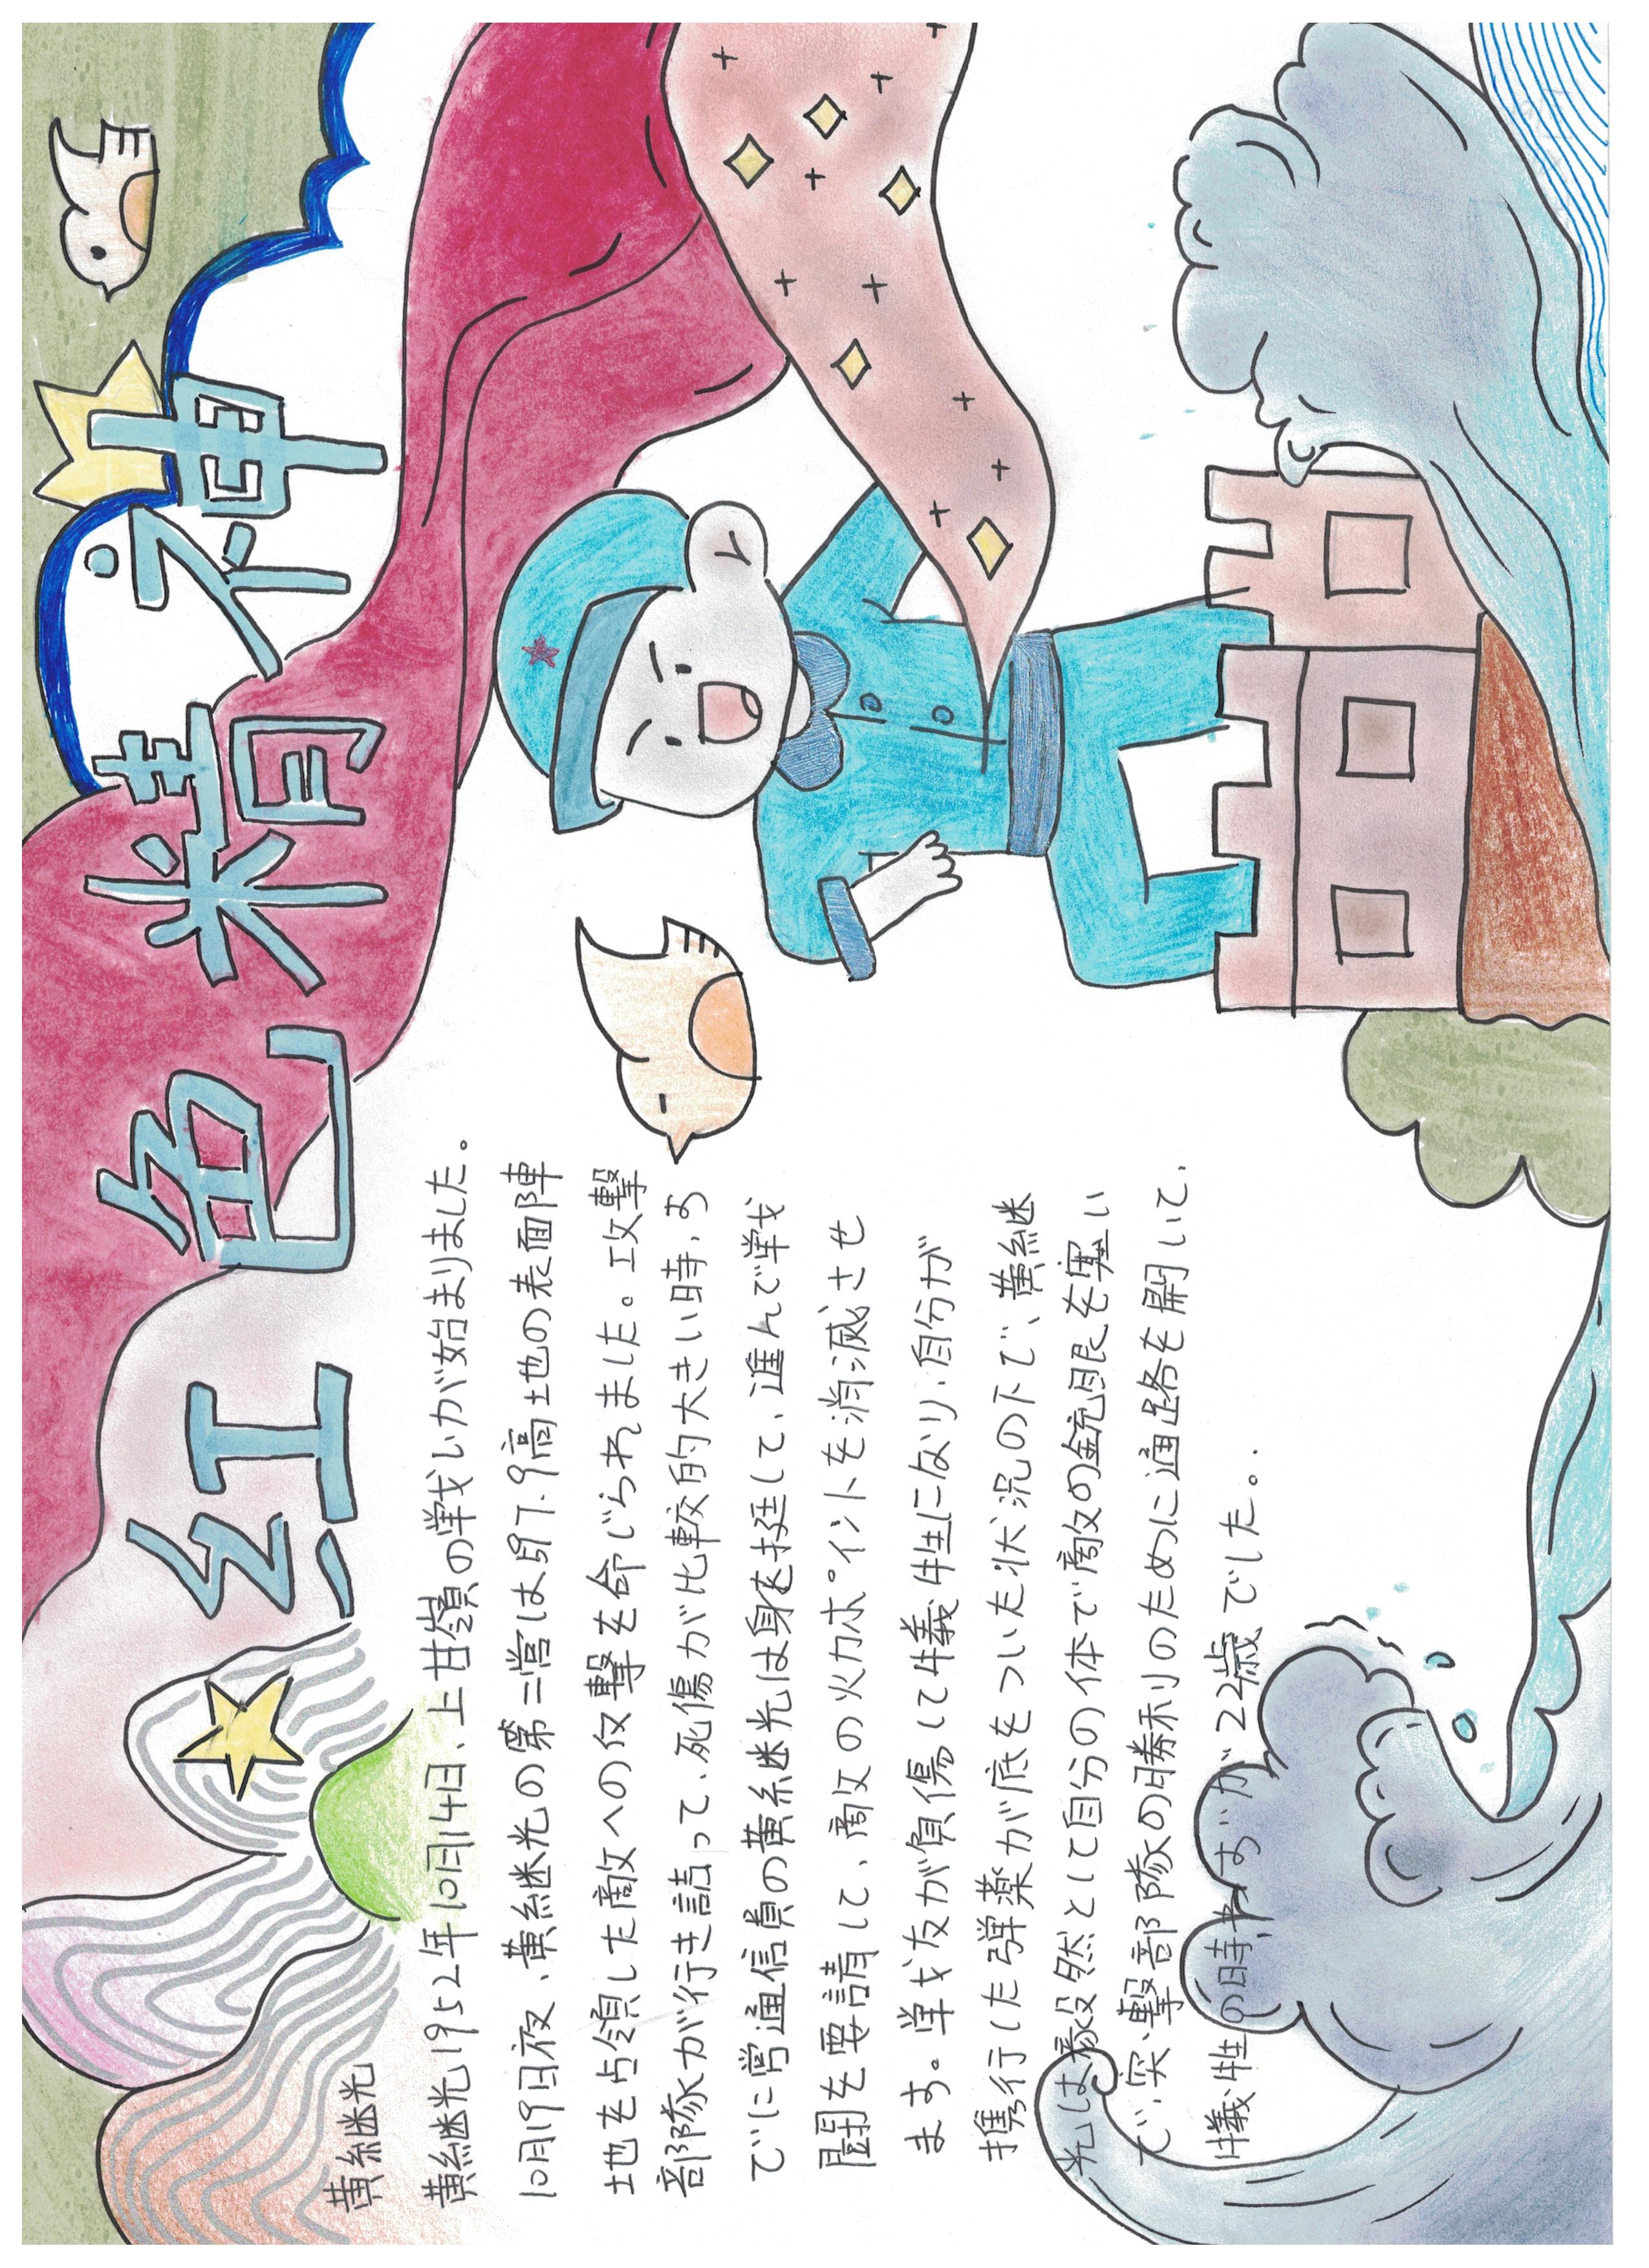 红色精神
黄継光
黄継光1952年10月14日、上甘嶺の戦いが始まりました。
10月19日夜、黄継光の第二営は597.9高地の表面陣
地を占領した敵への反撃を命じられました。攻撃
部隊が行き詰って、死傷が比較的大きい時、お
でに営通信員の黄継光は身を挺して、進んで戦
闘を要請して、敵の火力ポイントを消滅させ
ます。戦友が負傷して犠牲になり、自分が
携行した弾薬が底をついた状況の下で、黄継
光は毅然として自分の体で敵の銃眼を塞い
で、突撃部隊の勝利のために通路を開いて、
犠牲の時、わずか22歳でした。.